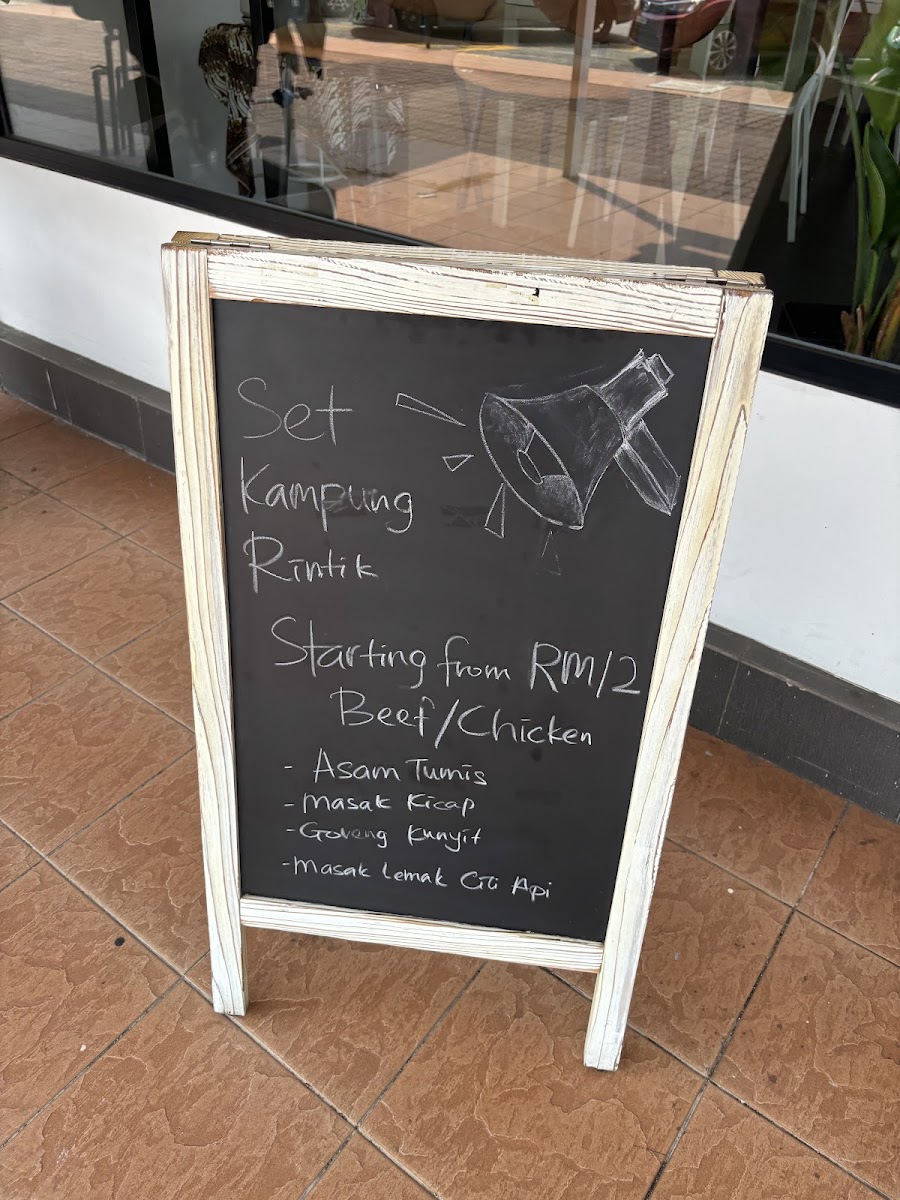 Set
Kampung
Rintik
Starting from RM12
Beef/Chicken
- Asam Tumis
- Masak Kicap
- Goreng Kunyit
- Masak Lemak Cili Api